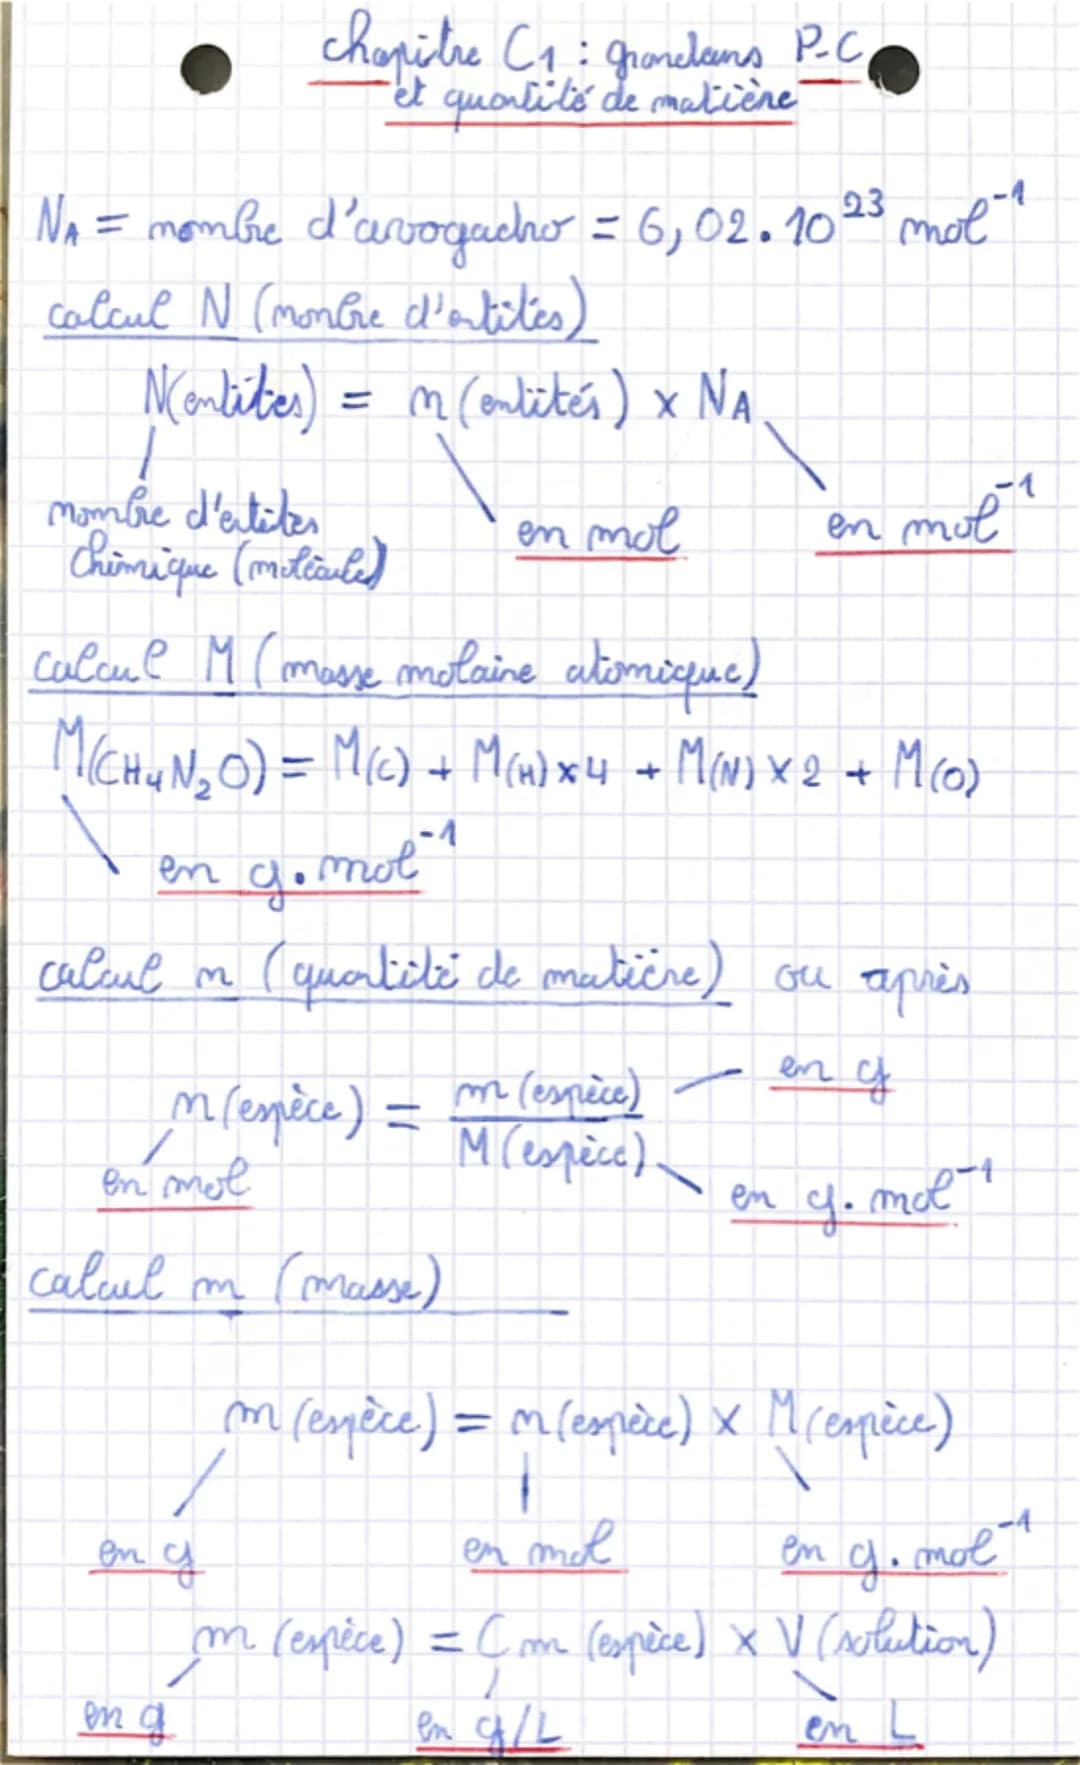 chapitre C1 : grandeurs P-C
et quantité de matière
NA = nombre d'avogadro = 6,02.10²³ mol⁻¹
calcul N (nombre d'entités)
N(entités) = n (entités) x NA
nombre d'entités
chimique (molécules)
en mol
en mol⁻¹
calcul M (masse molaire atomique)
M(CH₄N₂O) = M(C) + M(H) x 4 + M(N) x 2 + M(O)
en g.mol⁻¹
calcul n (quantité de matière) ou après
n (espèce) = m (espèce) / M (espèce)
en g
en mol
en g.mol⁻¹
calcul m (masse)
m (espèce) = n (espèce) x M (espèce)
en g en mol en g.mol⁻¹
m (espèce) = Cm (espèce) x V (solution)
en g en g/L en L